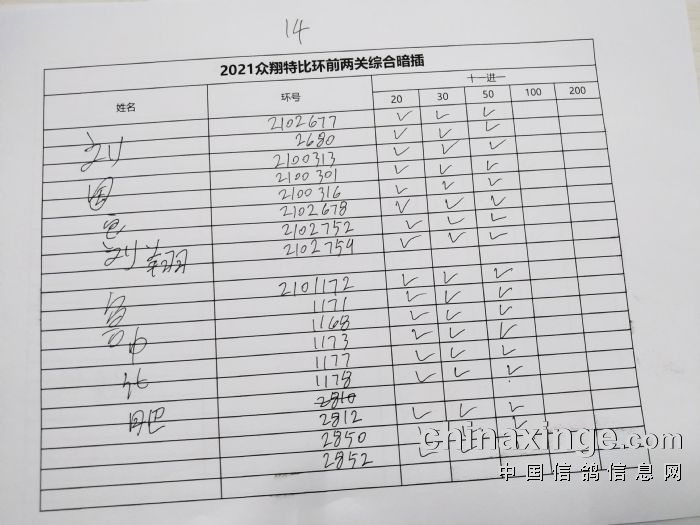 14
2021众翔特比环前两关综合暗插
姓名 环号 十一进一
20 30 50 100 200
2102677 ✓ ✓ ✓
2680 ✓ ✓ ✓
2100313 ✓ ✓ ✓
2100301 ✓ ✓ ✓
2100316 ✓ ✓ ✓
2102678 ✓ ✓ ✓
2102752 ✓ ✓ ✓
2102759 ✓ ✓ ✓
2101172 ✓ ✓ ✓
1171 ✓ ✓ ✓
1168 ✓ ✓ ✓
1173 ✓ ✓ ✓
1177 ✓ ✓ ✓
1178 ✓ ✓ ✓
2810
2812 ✓ ✓ ✓
2850 ✓ ✓ ✓
2852 ✓ ✓ ✓
chinaxinge.com
中国信鸽信息网